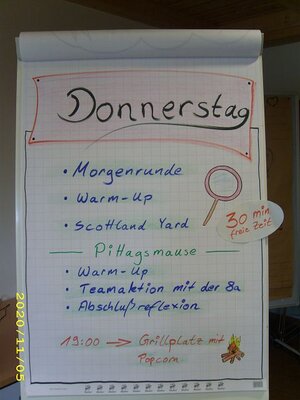 Donnerstag
• Morgenrunde
• Warm-Up
• Scottland Yard
30 min
freie Zeit
Pittagsmause
• Warm-Up
• Teamaktion mit der 8a
• Abschlußreflexion
19:00 → Grillplatz mit
Popcorn
2020/11/05